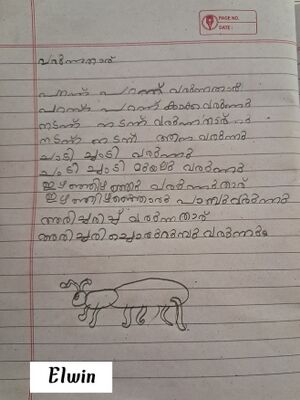 PAGE NO.
DATE:
വരുന്നതാര്
പറന്ന് പറന്ന് വരുന്നതാര്
പറന്ന് പറന്ന് കാക്ക വരുന്നു
നടന്ന് നടന്ന് വരുന്നതാര്
നടന്ന് നടന്ന് വരുന്നു
ചാടി ചാടി വരുന്നു
ചാടി ചാടി വരുന്നു
ഇഴഞ്ഞിഴഞ്ഞു വരുന്നതാര്
ഇഴഞ്ഞിഴഞ്ഞൊരു പാമ്പു വരുന്നു
അരിച്ചരിച്ച് വരുന്നതാര്
അരിച്ചരിച്ചൊരുറുമ്പു വരുന്നു
Elwin